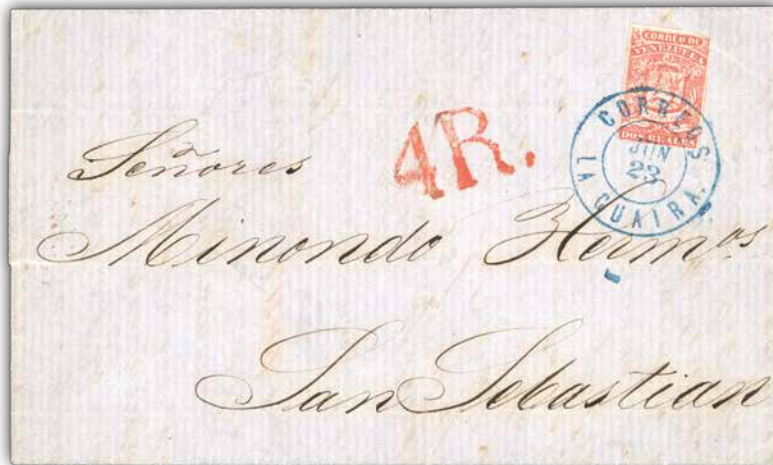 CORREO DE
VENEZUELA
DOS REALES
CORREOS
JUN
23
LA GUAIRA.
4R.
Señores
Minondo Hermos
San Sebastian